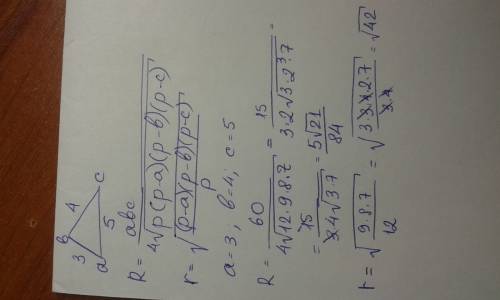 3 b 4 c
a 5
R = abc / 4√(p(p-a)(p-b)(p-c))
r = √((p-a)(p-b)(p-c) / p)
a = 3, b = 4; c = 5
R = 60 / 4√(12·9·8·7) = 15 / 3·2√(3·2³·7) =
= 15 / 3·4√(3·7) = 5√21 / 84
r = √(9·8·7 / 12) = √(3·3·4·2·7 / 3·4) = √42